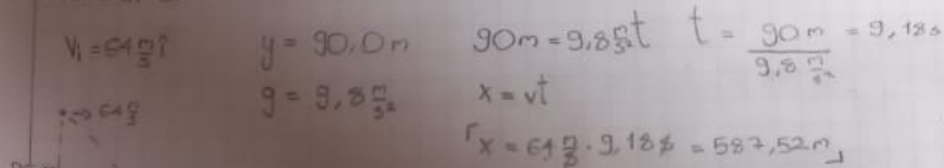 Vᵢ = 64 m/s î   y = 90,0m   90m = 9,8 m/s² t   t = 90m / 9,8 m/s² = 9,18s
→ 64 m/s   g = 9,8 m/s²   x = vt
x = 64 m/s · 9,18s = 587,52m